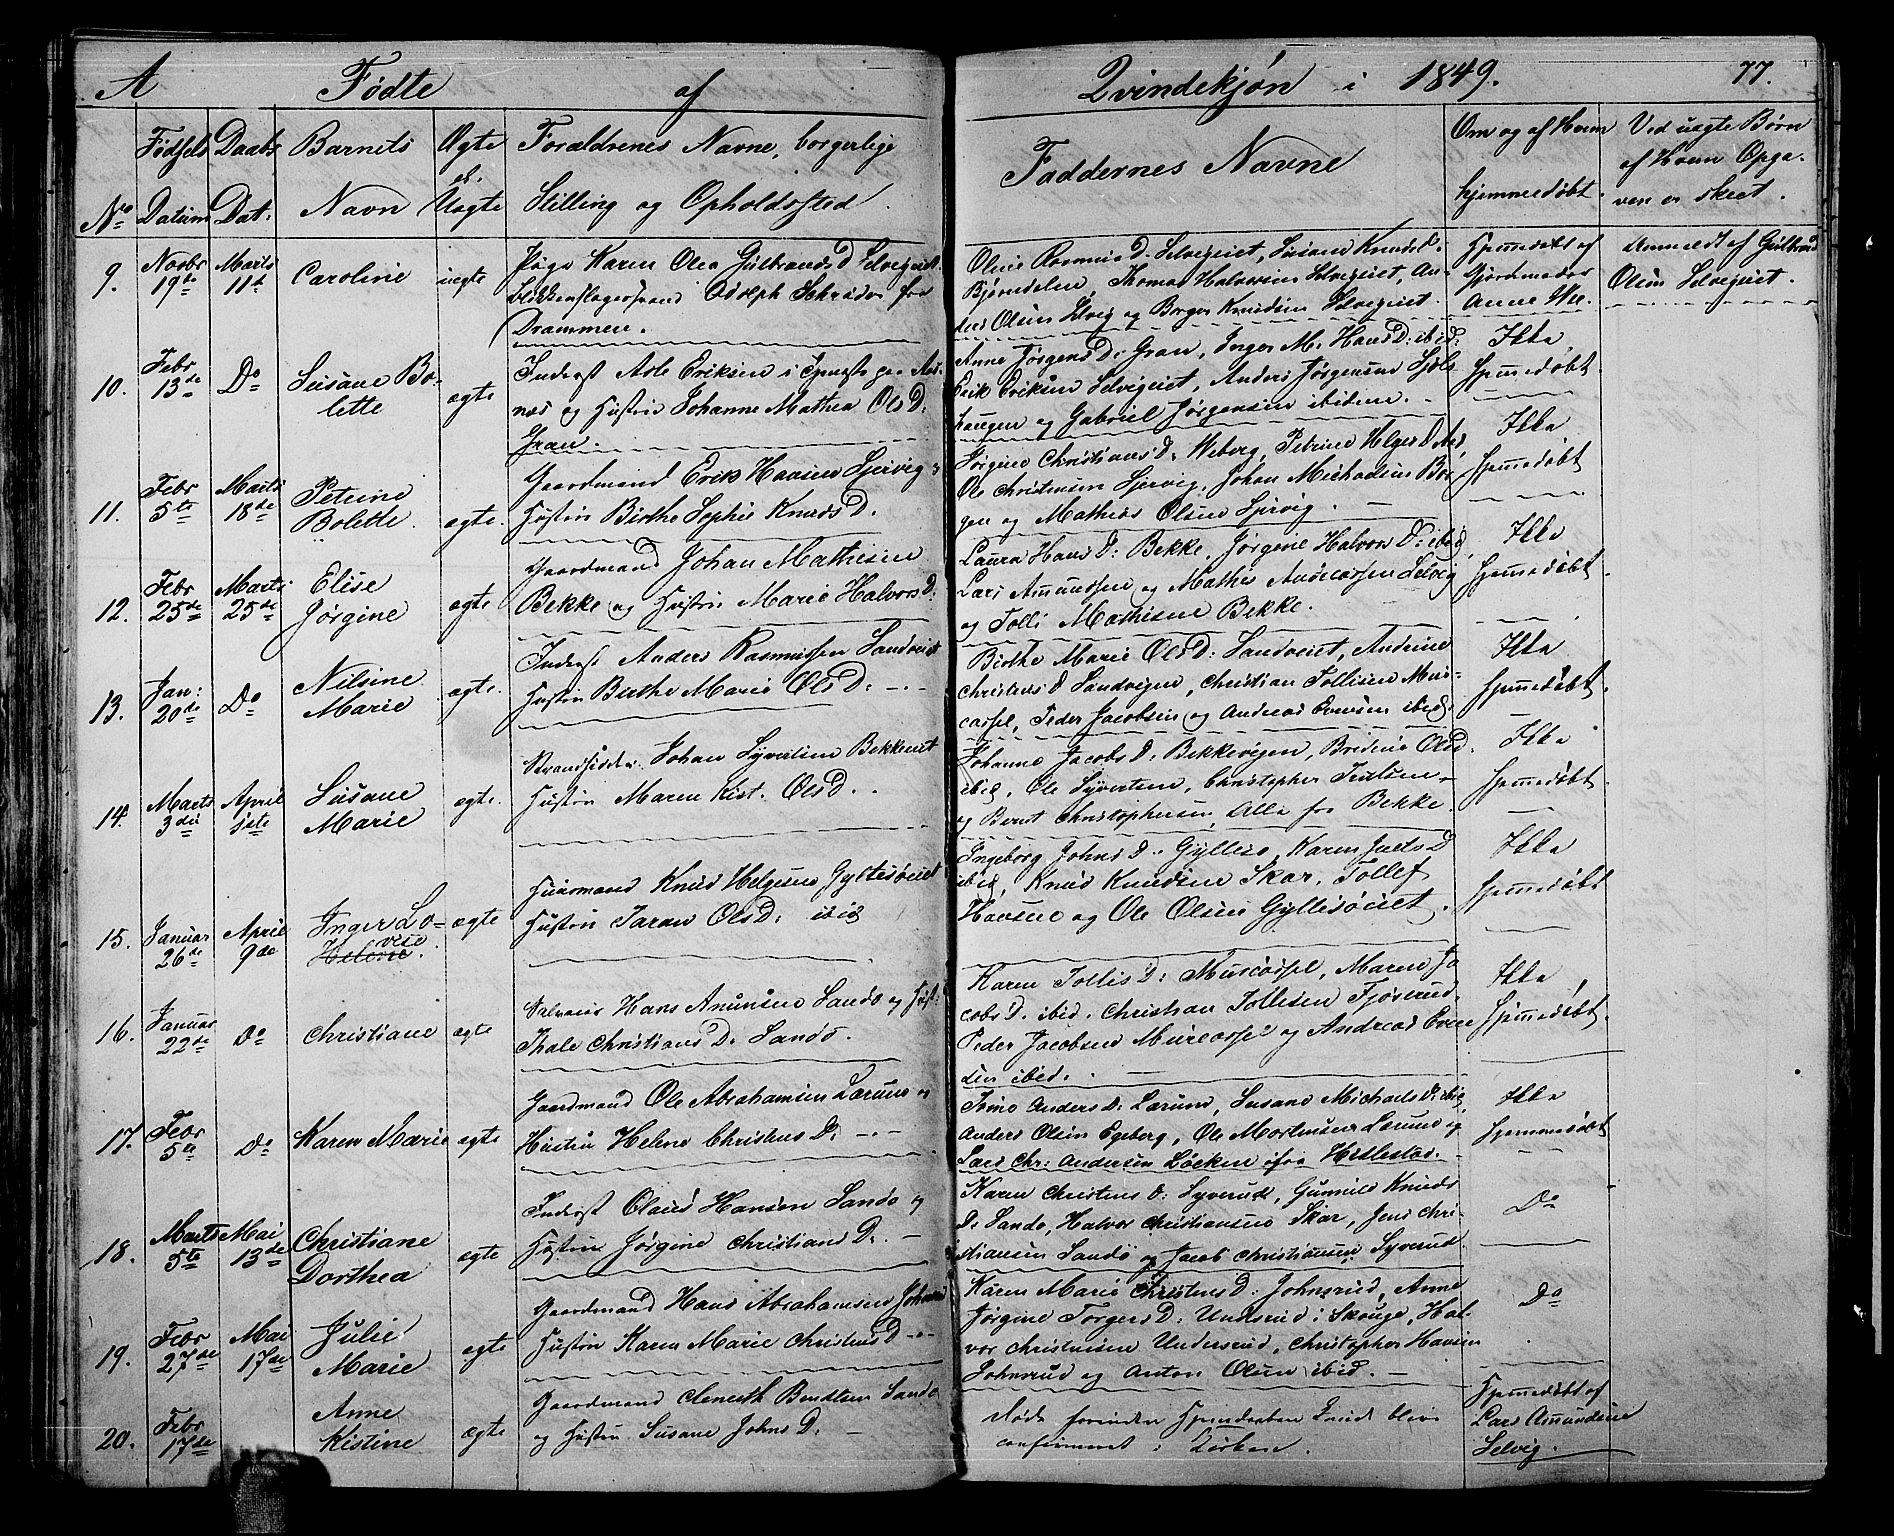 A Fødte af Qvindekjøn i 1849. 77.
No
Fødsels Datum
Daabs Dat.
Barnets Navn
Ægte el. Uægte
Forældrenes Navne, borgerlige
Stilling og Opholdsted.
Faddernes Navne
Om og af Hvem
hjemmedøbt.
Ved uægte Børn
af Hvem Opga-
ven er skeet.
9. Novbr 19de Marts 11te Caroline uegte
Pige Karen Olea Gulbrands D. Selvigeiet.
Blikkenslagersvend Adolph fra
Drammen.
Oline Rasmus D. Selvigeiet, Susane Knuds D.
Bjørndalen, Thomas Halvorsen Selvigeiet, An-
ders Olsen Selvig og Borger Knudsen Selvigeiet.
Hjemmedøbt af
Gjordmoder
Anne
Anmeldt af Gulbrand
Olsen Selvigeiet.
10. Febr 13de Do Susane Bo-
lette ægte
Inderst Asle Eriksen i
og Hustru Johanne Mathea Ols D.
Gran.
Anne Jørgens D. Gran, Inger M. Hans D. ibid.
Erik Eriksen Selvigeiet, Anders Jørgensen
haugen og Gabriel Jørgensen ibidem.
Ikke
hjemmedøbt
11. Febr 5te Marts 18de Petrine
Bolette. ægte.
Gaardmand Erik Hansen
Hustru Birthe Sophie Knuds D.
Jørgine Christians D. Weberg, Petrine Helges D.
Ole Christensen Johan Michaelsen Bør-
gen og Mathias Olsen
Ikke
hjemmedøbt
12. Febr 25de Marts 25de Elise
Jørgine ægte.
Gaardmand Johan Mathisen
Bekke og Hustru Marie Halvors D.
Laura Hans D. Bekke, Jørgine Halvors D. ibid
Lars Amundsen og Mathis Andreassen Selvig
og Tolli Mathisen Bekke.
Ikke
hjemmedøbt.
13. Jan: 20de Do Nilsine
Marie ægte.
Inderst Anders Rasmussen Sandveiet
Hustru Berthe Marie Ols D.
Birthe Marie Ols D. Sandveiet, Andrine
Christens D Sandvigen, Christian Tollisen Mus-
cassel, Peder Jacobsen og Andreas Evensen ibid.
Ikke
hjemmedøbt.
14. Marts 3die April 1ste Susane
Marie ægte.
Strandsidder Johan Syvertsen Bekkeeiet
Hustru Maren Kist. Ols D.
Johanne Jacobs D. Bekkevigen, Bredine Ols D.
ibid, Ole Syvertsen, Christopher
og Bernt Christophersen, Alle fra Bekke.
Ikke
hjemmedøbt.
15. Januar 26de April 9de Inger Lo-
vise
Helene. ægte
Huusmand Knud Helgesen Gyltesøeiet
Hustru Taran Ols D. ibid
Ingeborg Johns D. Gylteso, Karen D
ibid, Knud Knudsen Skar, Tollef
Hansen og Ole Olsen Gyltesøeiet.
Ikke
hjemmedøbt
16. Januar 22de Do Christiane ægte
Hans Amundsen Sandø og Hust:
Thale Christians D. Sandø.
Karen Tollis D. Muscassel, Maren Ja
cobs D. ibid. Christian Tollisen
Peder Jacobsen Muscassel og Andreas Even
sen ibid.
Ikke
hjemmedøbt.
17. Febr 5te Do Karen Marie ægte
Gaardmand Ole Abrahamsen Lærum og
Hustru Helene Christens D.
Anders D. Lærum, Susane Michaels D. ibid
Anders Olsen Egeberg, Ole Mortensen Lærum og
Lars Chr: Andersen Løkken fra Hillestad.
Ikke
hjemmedøbt
18. Marts 5te Mai 13de Christiane
Dorthea ægte
Inderst Olaus Hansen Sandø og
Hustru Jørgine Christians D.
Karen Christens D. Syverud, Gunnild Knuds
D. Sandø, Halvor Christiansen Skar, Jens Chri-
stiansen Sandø og Jacob Christiansen Syverud.
Do
19. Febr 27de Mai 17de Julie
Marie ægte
Gaardmand Hans Abrahamsen Johnsrud
Hustru Karen Marie Christens D.
Karen Marie Christens D. Johnsrud, Anne
Jørgine Torgers D. Undsrud i Skouge, Hal-
vor Christensen Undersrud, Christopher Hansen
Johnsrud og Anton Olsen ibid.
Do
20. Febr 17de Anne
Kistine ægte
Gaardmand Clemeth Bendtsen Sandø
og Hustru Susane Johns D.
Døde forinden Hjemmedaaben kunde blive
confirmeret i Kirken.
Hjemmedøbt af
Lars Amundsen
Selvig.